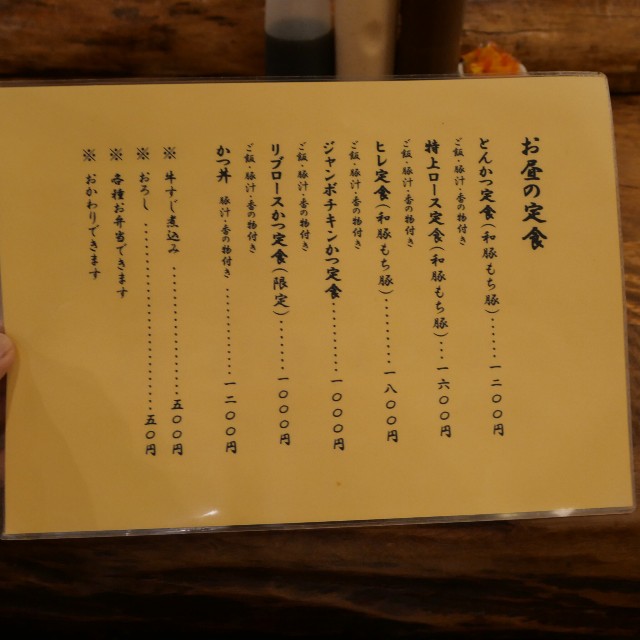 お昼の定食
とんかつ定食(和豚もち豚)・・・・・・一二〇〇円
ご飯・豚汁・香の物付き
特上ロース定食(和豚もち豚)・・・一六〇〇円
ご飯・豚汁・香の物付き
ヒレ定食(和豚もち豚)・・・・・・・・・一八〇〇円
ご飯・豚汁・香の物付き
ジャンボチキンかつ定食・・・・・・・・・一〇〇〇円
ご飯・豚汁・香の物付き
リブロースかつ定食(限定)・・・・・・・一〇〇〇円
ご飯・豚汁・香の物付き
かつ丼 豚汁・香の物付き・・・・・・・・・・一二〇〇円
※ 牛すじ煮込み・・・・・・・・・・・・・・・・五〇〇円
※ おろし・・・・・・・・・・・・・・・・・・・・・五〇円
※ 各種お弁当できます
※ おかわりできます